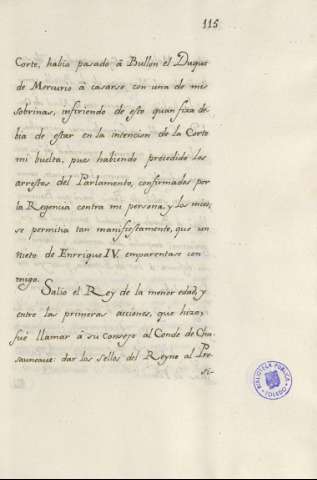 115
Corte, habia pasado â Bullon el Duque
de Mercurio â casarse con una de mis
sobrinas, infiriendo de esto quan fixa de-
bia de estar en la intencion de la Corte
mi buelta, pues habiendo precedido los
arrestos del Parlamento, confirmados por
la Regencia contra mi persona, y los mios,
se permitia tan manifiestamente, que un
nieto de Enrrique IV. emparentase con
migo.
Salio el Rey de la menor edad, y
entre las primeras acciones, que hizo,
fué llamar â su Consejo al Conde de Cha-
sauneaue: dar los sellos del Reyno al Pre-
si-
BIBLIOTECA PÚBLICA
TOLEDO